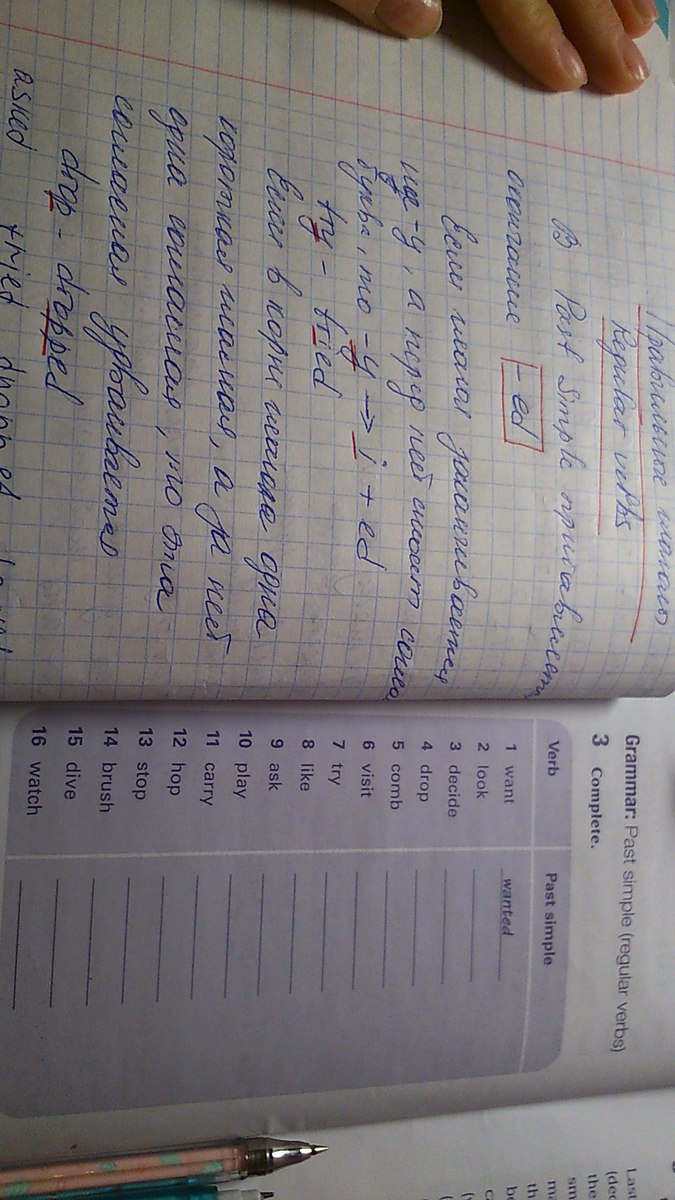 Правильные глаголы
Regular verbs
В Past Simple прибавляется
окончание -ed
Если глагол заканчивается
на -y, а перед ней стоит соглас
буква, то -y → i + ed
try - tried
Если в корне глагола одна
короткая гласная, а за ней
одна согласная, то эта
согласная удваивается
drop - dropped
asked tried dropped
Grammar: Past simple (regular verbs)
3 Complete.
Verb Past simple
1 want wanted
2 look
3 decide
4 drop
5 comb
6 visit
7 try
8 like
9 ask
10 play
11 carry
12 hop
13 stop
14 brush
15 dive
16 watch
Last